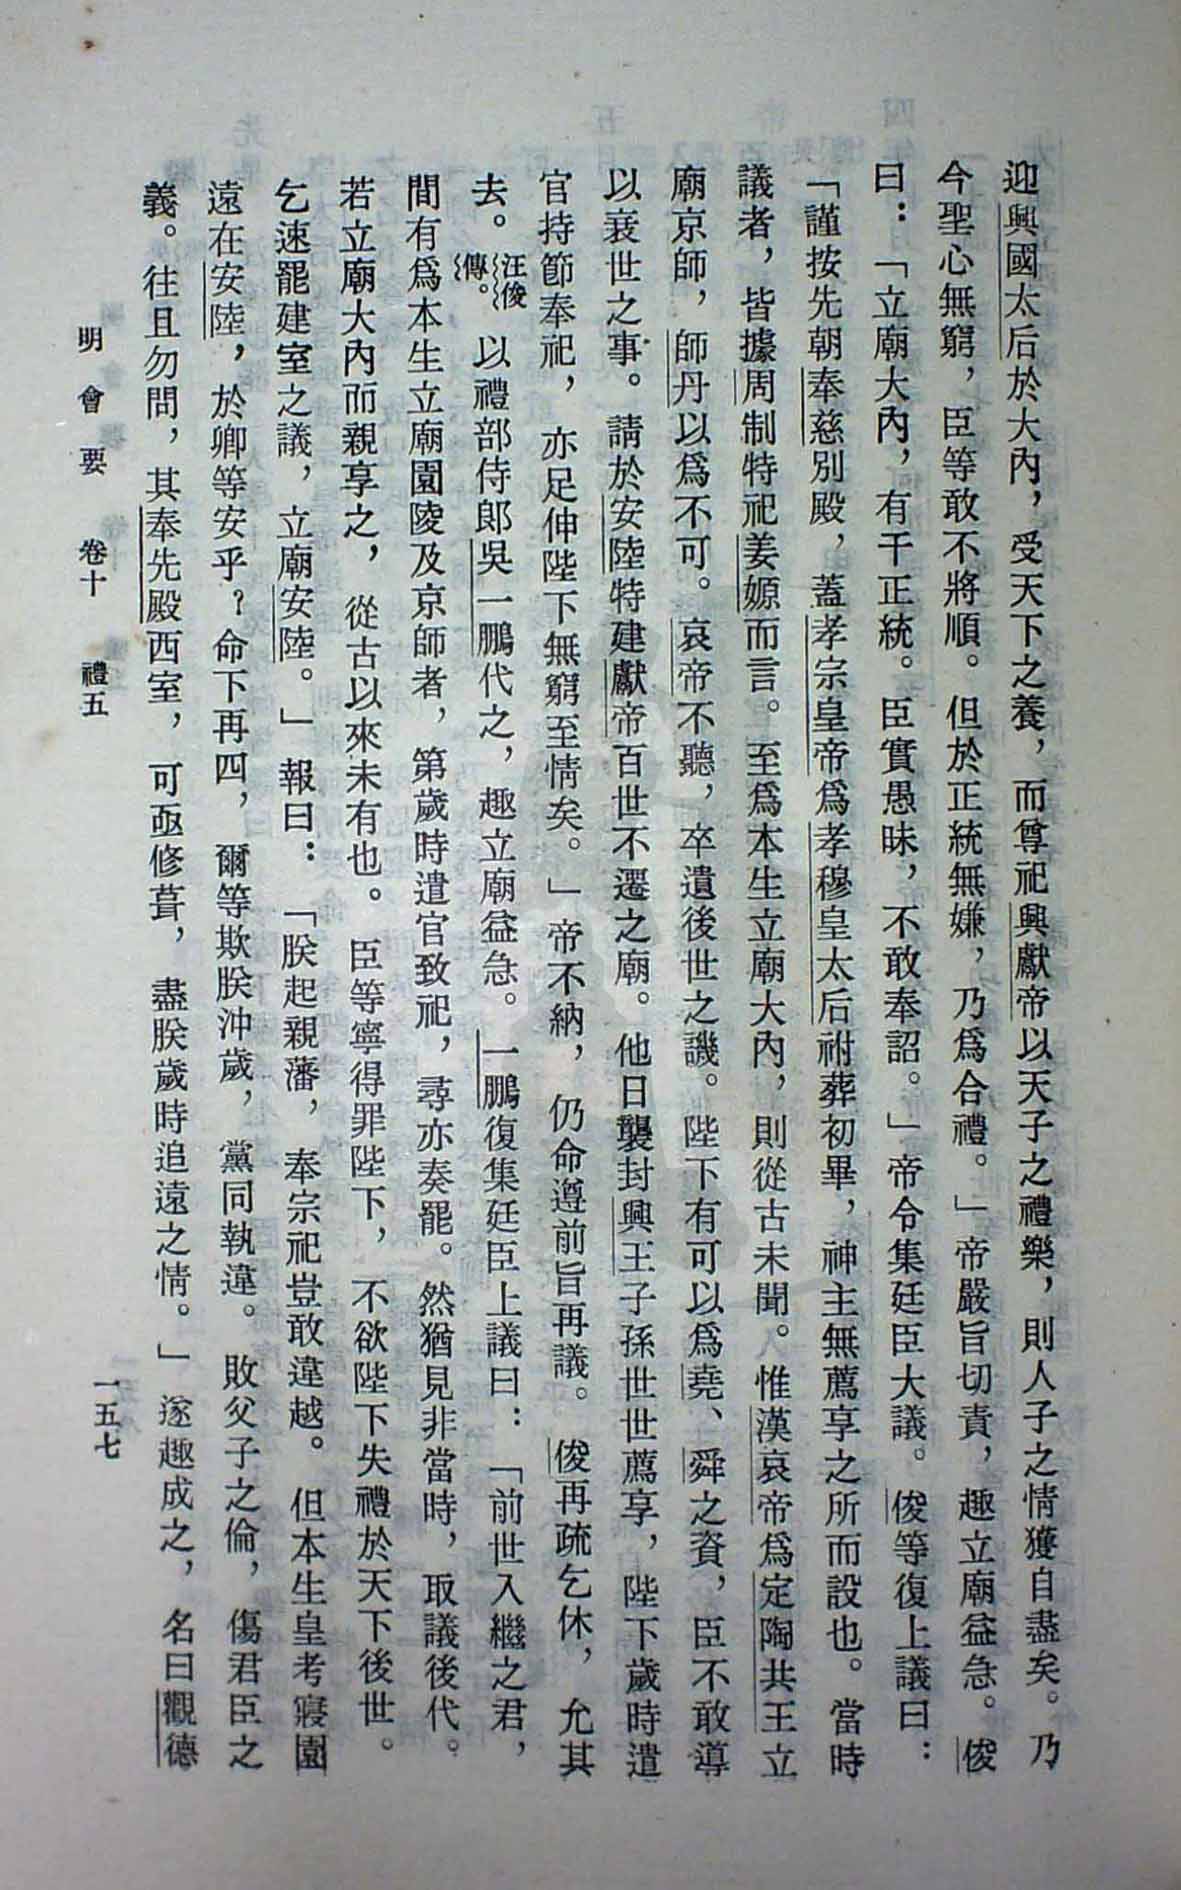 迎興國太后於大內，受天下之養，而尊祀興獻帝以天子之禮樂，則人子之情獲自盡矣。乃
今聖心無窮，臣等敢不將順。但於正統無嫌，乃爲合禮。」帝嚴旨切責，趣立廟益急。俊
曰：「立廟大內，有干正統。臣實愚昧，不敢奉詔。」帝令集廷臣大議。俊等復上議曰：
「謹按先朝奉慈別殿，蓋孝宗皇帝爲孝穆皇太后祔葬初畢，神主無薦享之所而設也。當時
議者，皆據周制特祀姜嫄而言。至爲本生立廟大內，則從古未聞。惟漢哀帝爲定陶共王立
廟京師，師丹以爲不可。哀帝不聽，卒遺後世之譏。陛下有可以爲堯、舜之資，臣不敢導
以衰世之事。請於安陸特建獻帝百世不遷之廟。他日襲封興王子孫世世薦享，陛下歲時遣
官持節奉祀，亦足伸陛下無窮至情矣。」帝不納，仍命遵前旨再議。俊再疏乞休，允其
去。汪俊傳。以禮部侍郎吳一鵬代之，趣立廟益急。一鵬復集廷臣上議曰：「前世入繼之君，
間有爲本生立廟園陵及京師者，第歲時遣官致祀，尋亦奏罷。然猶見非當時，取議後代。
若立廟大內而親享之，從古以來未有也。臣等寧得罪陛下，不欲陛下失禮於天下後世。
乞速罷建室之議，立廟安陸。」報曰：「朕起親藩，奉宗祀豈敢違越。但本生皇考寢園
遠在安陸，於卿等安乎？命下再四，爾等欺朕沖歲，黨同執違。敗父子之倫，傷君臣之
義。往且勿問，其奉先殿西室，可亟修葺，盡朕歲時追遠之情。」遂趣成之，名曰觀德
明會要 卷十 禮五 一五七